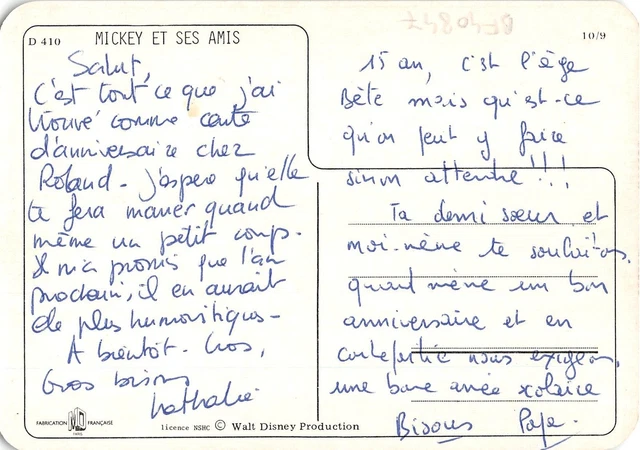 D 410
MICKEY ET SES AMIS
10/9
Salut,
C'est tout ce que j'ai
trouvé comme carte
d'anniversaire chez
Roland - j'espère qu'elle
te fera marrer quand
même un petit coup.
Il m'a promis que l'an
prochain, il en aurait
de plus humoristiques -
A bientôt. Gros,
Gros bisous
Nathalie
15 an, c'est l'âge
Bête mais qu'est-ce
qu'on peut y faire
sinon attendre !!!
Ta demi sœur et
moi-même te souhaitons,
quand même un bon
anniversaire et en
contrepartie nous exigeons,
une bonne année scolaire
Bisous Papa.
FABRICATION MD FRANÇAISE
PARIS
licence NSHC © Walt Disney Production